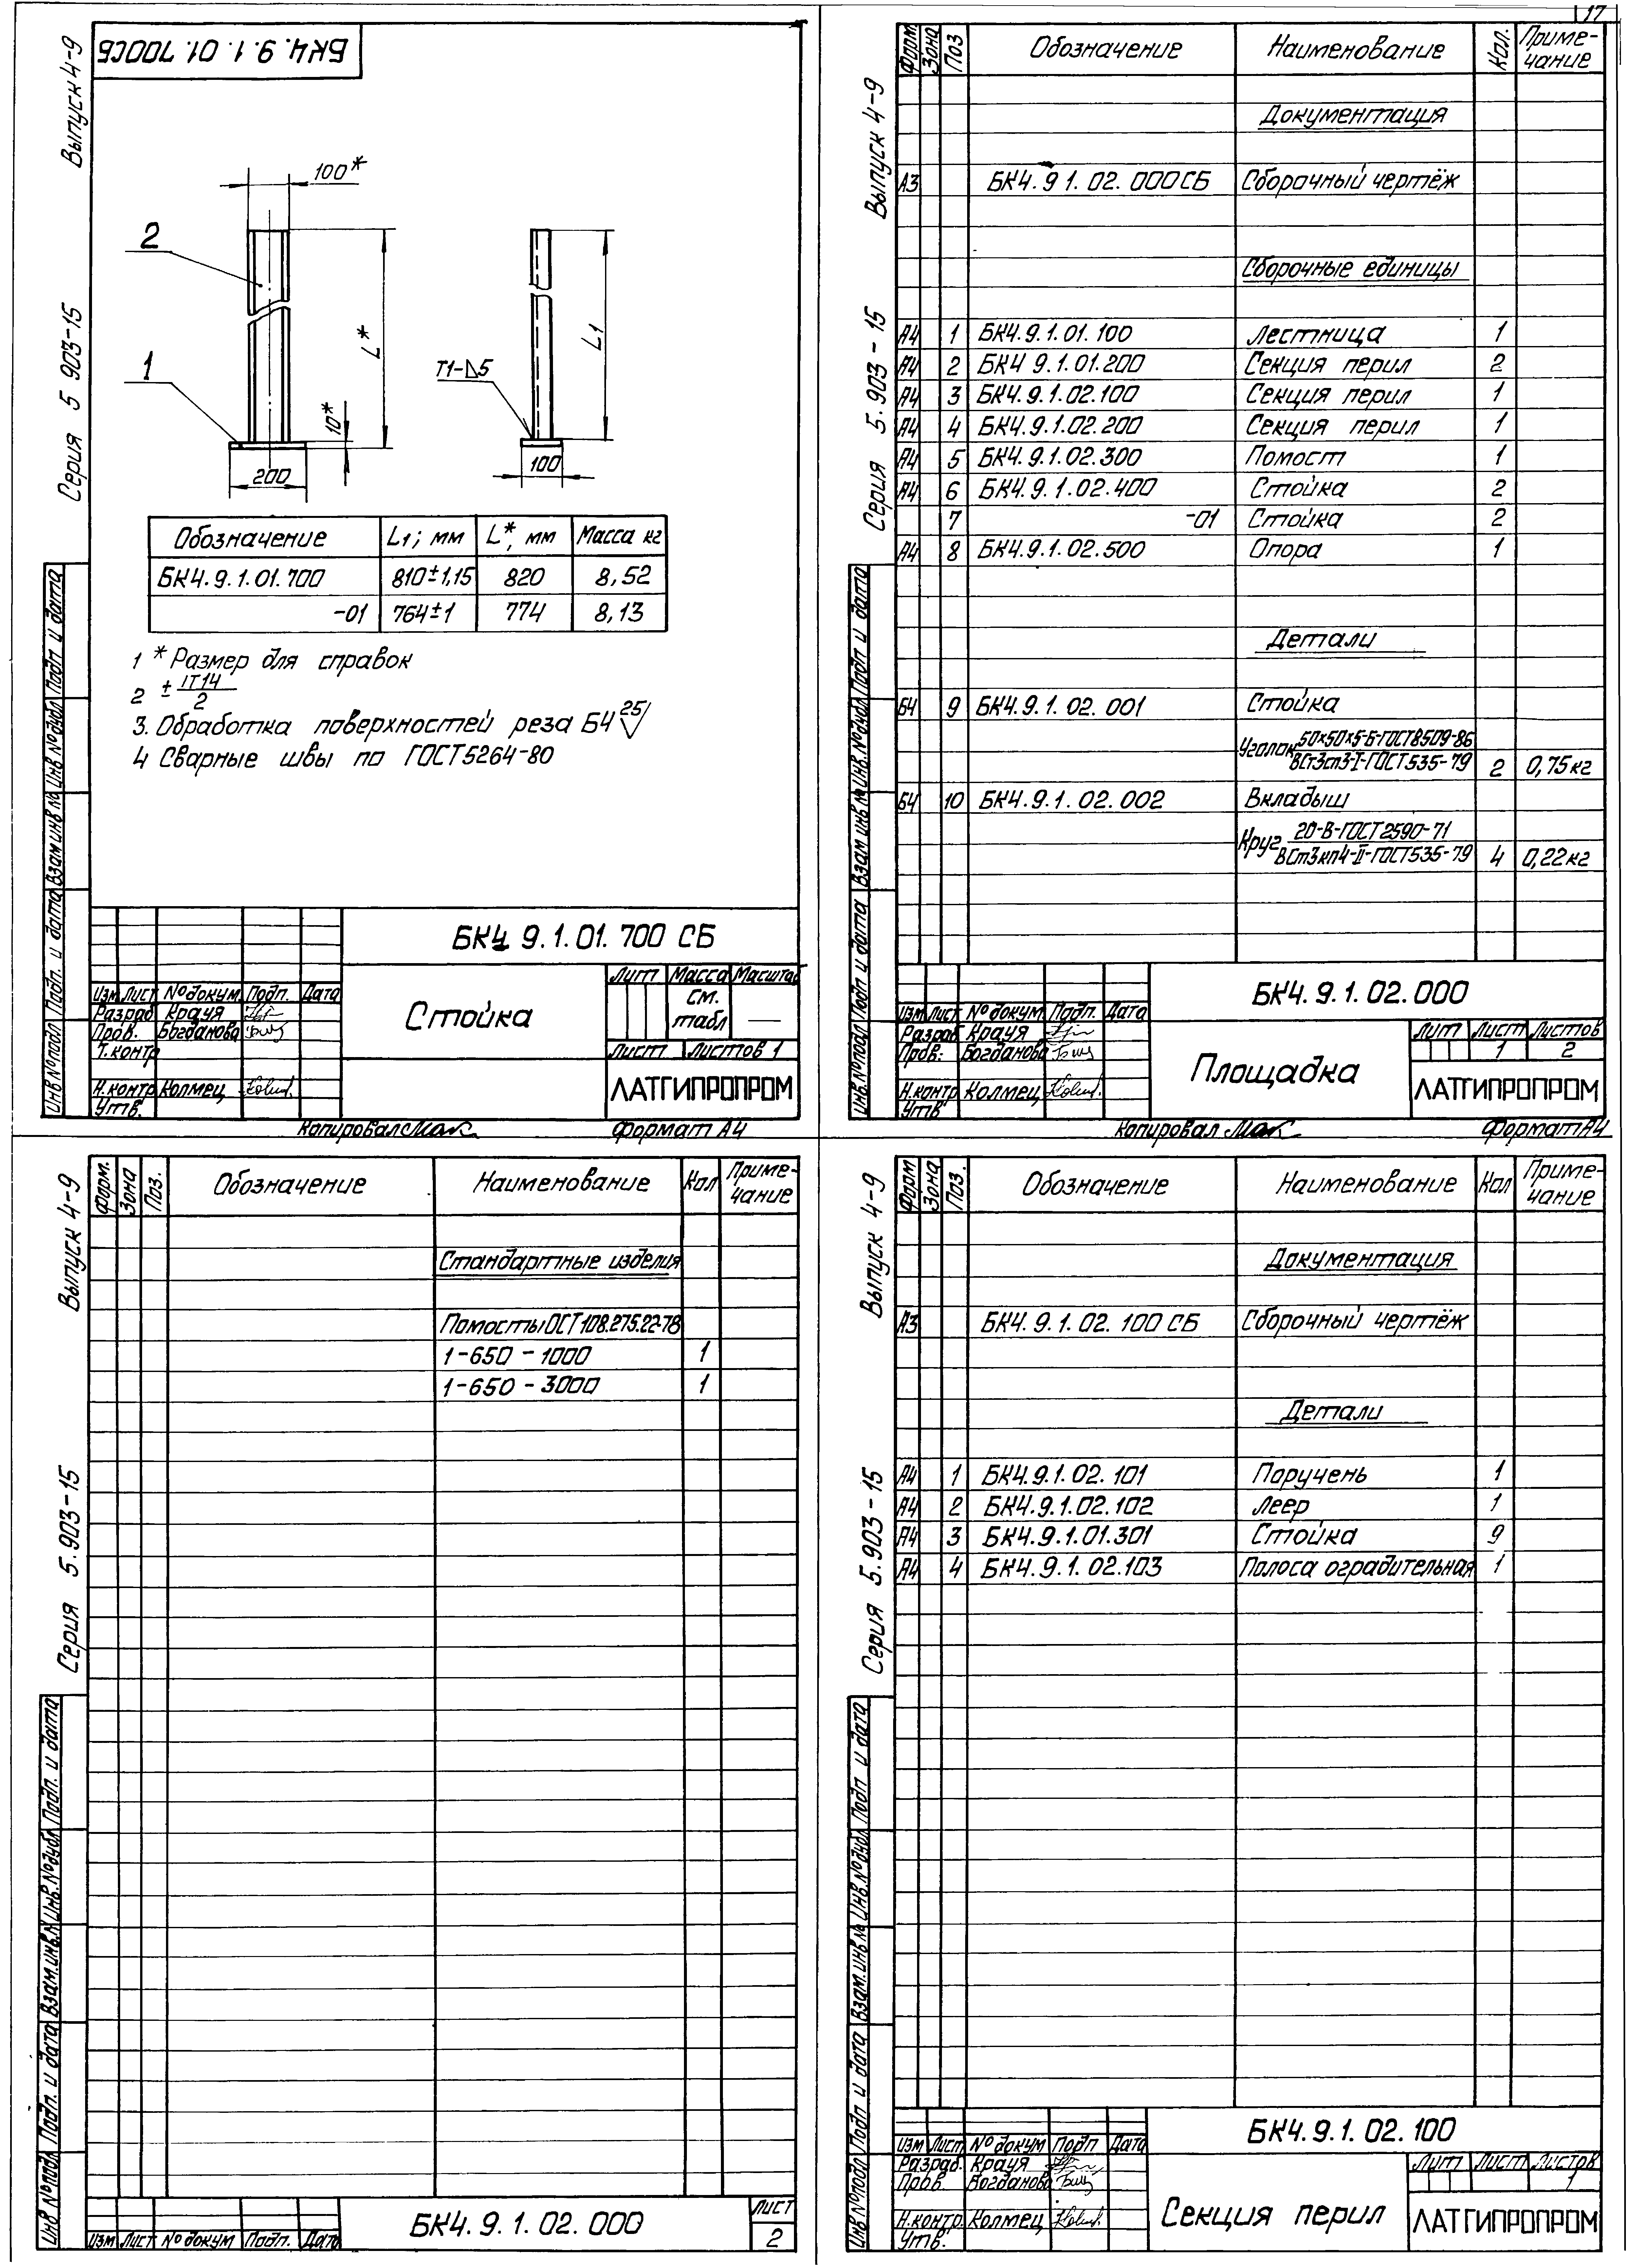 17
БК4.9.1.01.700СБ
Выпуск 4-9
Серия 5 903-15
100*
2
1
L*
10*
200
L1
Т1-⊿5
100
Обозначение L1; мм L*, мм Масса кг
БК4.9.1.01.700 810±1,15 820 8,52
-01 764±1 774 8,13
1 * Размер для справок
2 ± IT14/2
3. Обработка поверхностей реза Б4 25√
4 Сварные швы по ГОСТ5264-80
Инв №подл Подп. и дата Взам инв № Инв №дубл Подп и дата
БК4 9.1.01.700 СБ
Изм Лист №докум. Подп. Дата
Разраб Крауя
Пров. Богданова
Т.контр
Н.контр Колмец
Утв.
Стойка
Лит Масса Масштаб
См. табл —
Лист Листов 1
ЛАТГИПРОПРОМ
Копировал Мак Формат А4
Выпуск 4-9
Серия 5.903-15
Форм. Зона Поз Обозначение Наименование Кол. Приме-
чание
Документация
А3 БК4.9 1.02.000СБ Сборочный чертёж
Сборочные единицы
А4 1 БК4.9.1.01.100 Лестница 1
А4 2 БК4 9.1.01.200 Секция перил 2
А4 3 БК4.9.1.02.100 Секция перил 1
А4 4 БК4.9.1.02.200 Секция перил 1
А4 5 БК4.9.1.02.300 Помост 1
А4 6 БК4.9.1.02.400 Стойка 2
7 -01 Стойка 2
А4 8 БК4.9.1.02.500 Опора 1
Детали
Б4 9 БК4.9.1.02.001 Стойка
Уголок 50×50×5-Б-ГОСТ8509-86
ВСт3сп3-I-ГОСТ535-79 2 0,75кг
Б4 10 БК4.9.1.02.002 Вкладыш
Круг 20-В-ГОСТ2590-71
ВСт3кп4-II-ГОСТ535-79 4 0,22кг
Инв.№подл Подп и дата Взам инв № Инв.№дубл Подп и дата
БК4.9.1.02.000
Изм Лист №докум. Подп. Дата
Разраб Крауя
Пров. Богданова
Н.контр Колмец
Утв
Площадка
Лит Лист Листов
1 2
ЛАТГИПРОПРОМ
Копировал Мак Формат А4
Выпуск 4-9
Серия 5.903-15
Форм. Зона Поз. Обозначение Наименование Кол Приме-
чание
Стандартные изделия
Помосты ОСТ108.275.22-78
1-650-1000 1
1-650-3000 1
Инв №подл Подп. и дата Взам.инв.№ Инв.№дубл Подп. и дата
Изм Лист №докум Подп. Дата
БК4.9.1.02.000
Лист
2
Выпуск 4-9
Серия 5.903-15
Форм Зона Поз. Обозначение Наименование Кол Приме-
чание
Документация
А3 БК4.9.1.02.100 СБ Сборочный чертёж
Детали
А4 1 БК4.9.1.02.101 Поручень 1
А4 2 БК4.9.1.02.102 Леер 1
А4 3 БК4.9.1.01.301 Стойка 9
А4 4 БК4.9.1.02.103 Полоса оградительная 1
Инв №подл Подп и дата Взам.инв № Инв.№дубл Подп и дата
БК4.9.1.02.100
Изм Лист №докум Подп Дата
Разраб. Крауя
Пров. Богданова
Н.контр. Колмец
Утв.
Секция перил
Лит Лист Листов
1
ЛАТГИПРОПРОМ